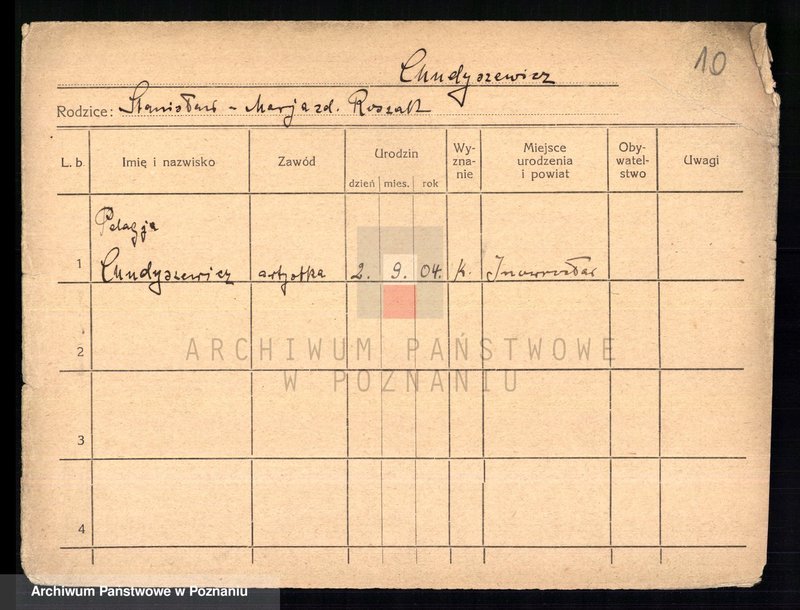 Chudyszewicz
10
Rodzice: Stanisław – Marja zd. Roszak
L. b. Imię i nazwisko Zawód Urodzin dzień mies. rok Wyznanie Miejsce urodzenia i powiat Obywatelstwo Uwagi
Pelagja
1 Chudyszewicz artystka 2. 9. 04. k. Inowrocław
2
ARCHIWUM PAŃSTWOWE
W POZNANIU
3
4
Archiwum Państwowe w Poznaniu